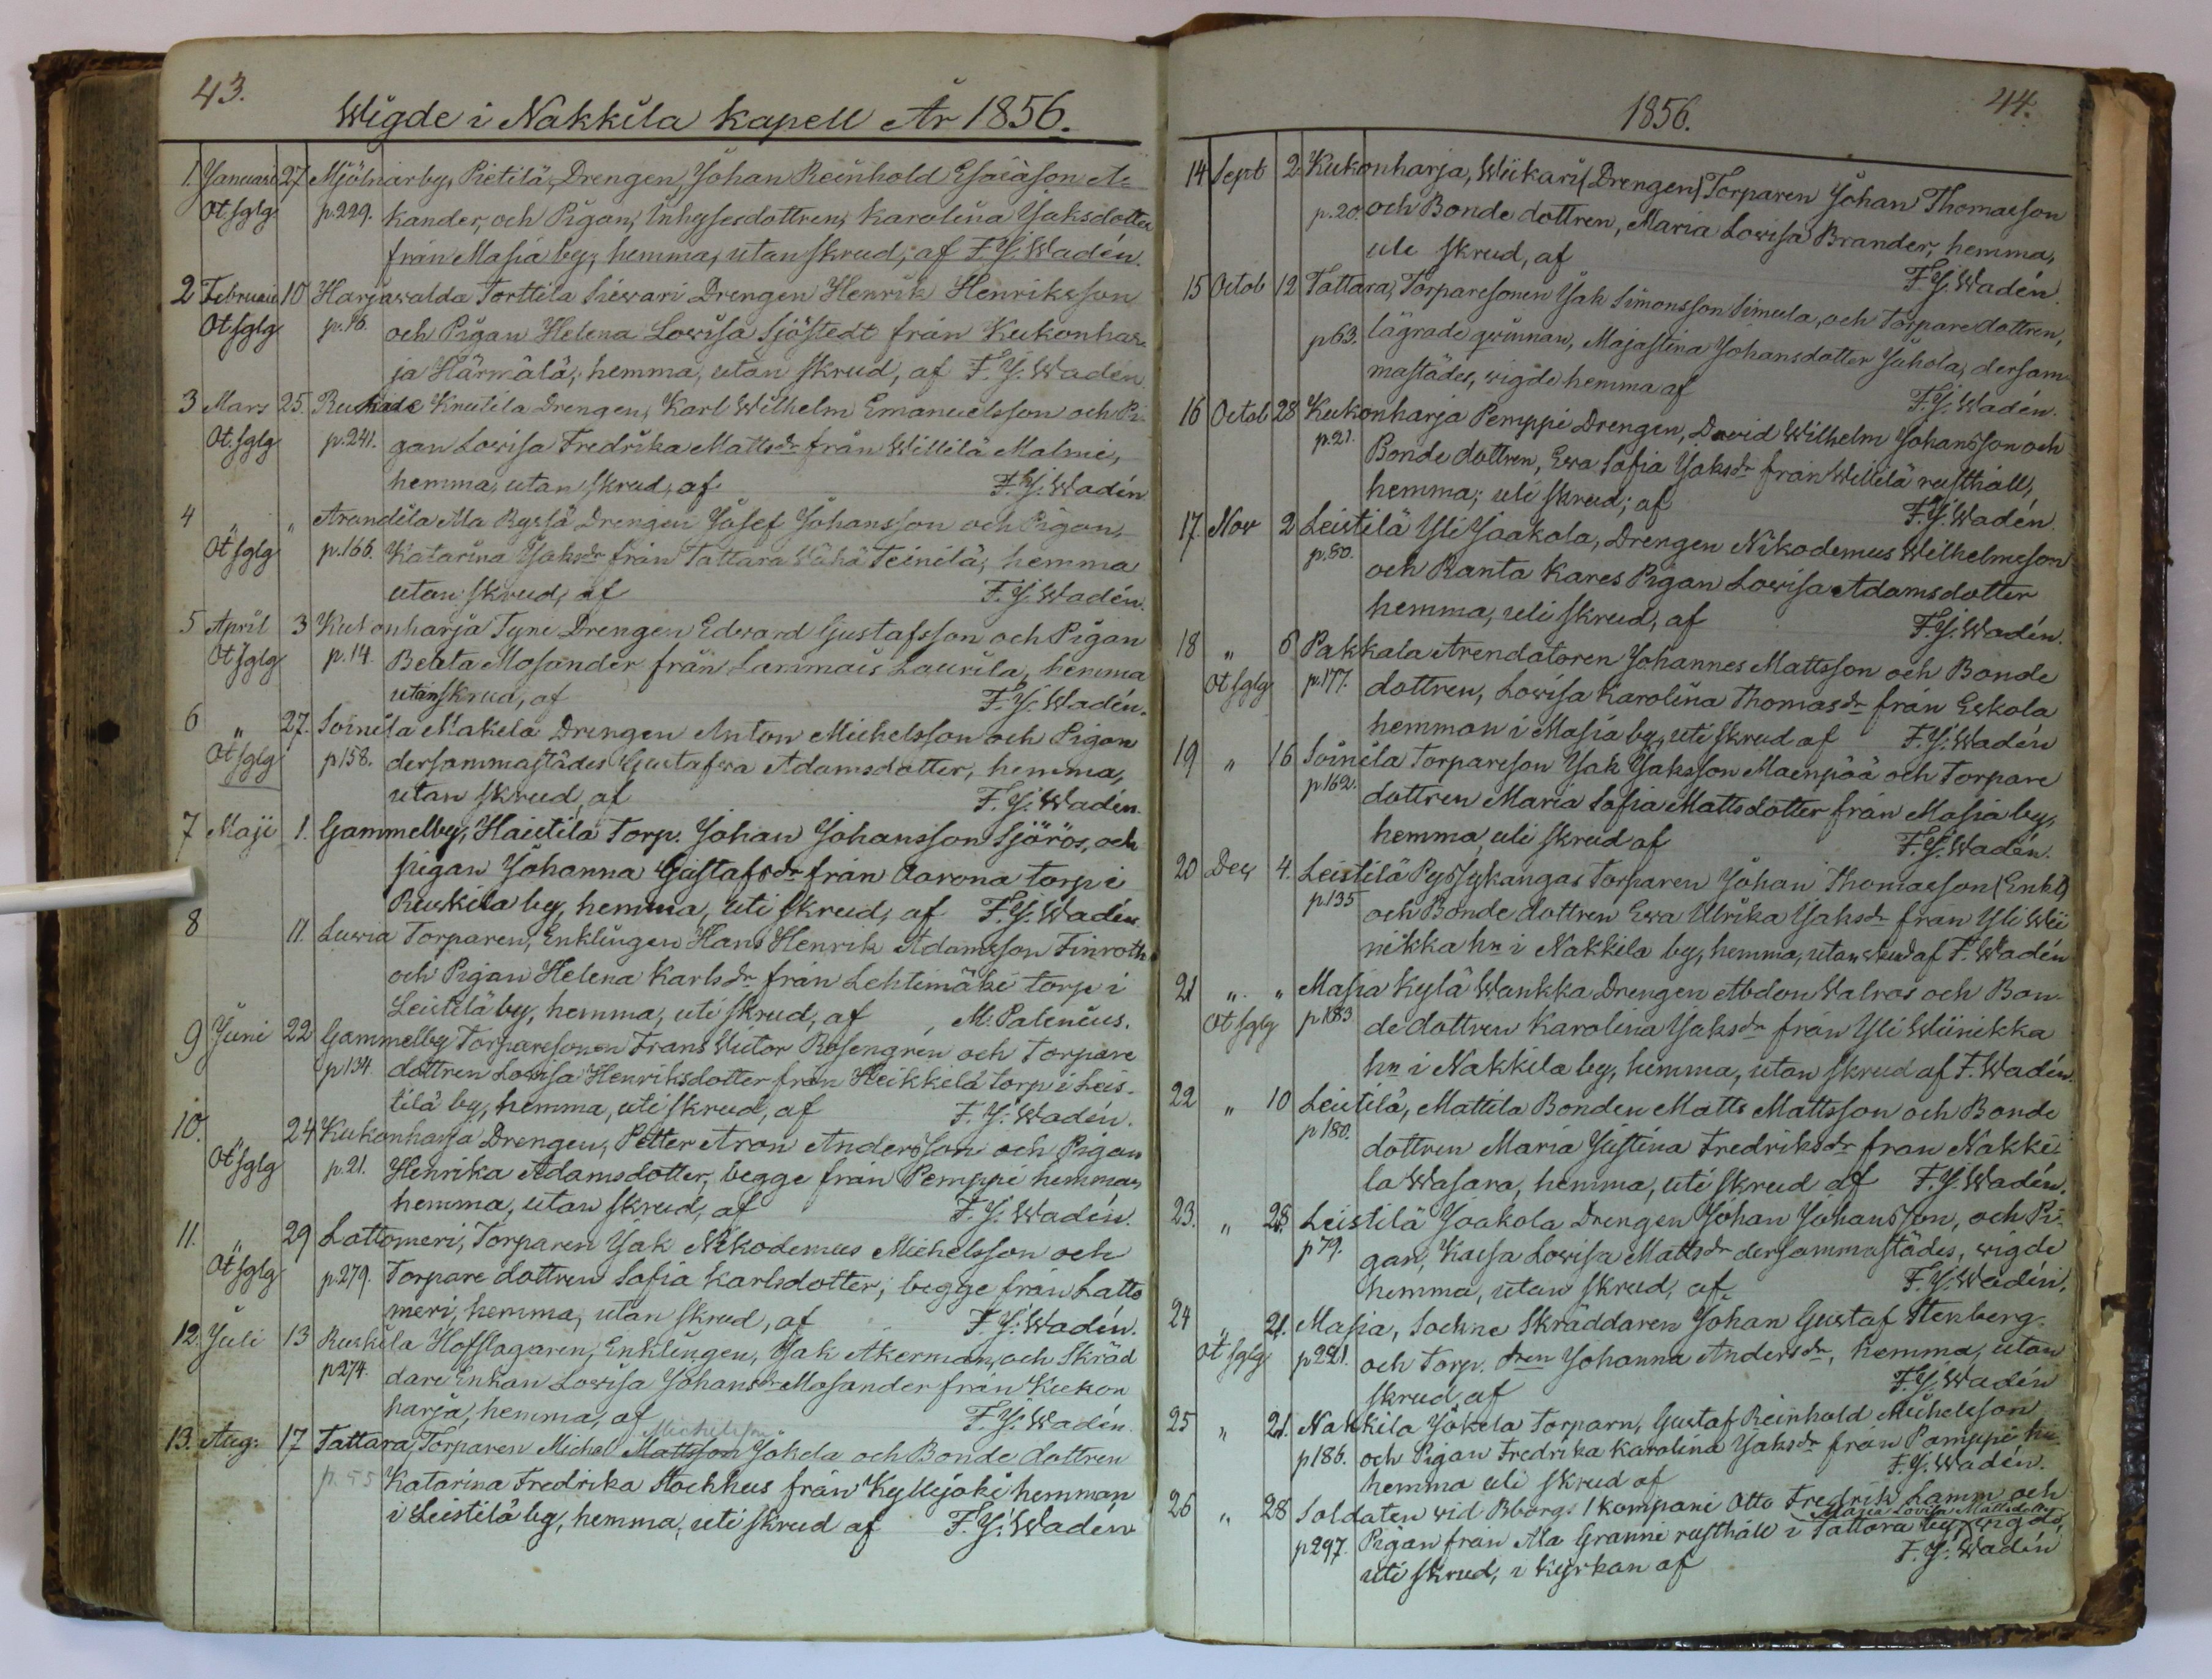 43.
Wigde i Nakkila kapell År 1856.
1. Januari 27 Mjölnarby, Pietilä, Drengen, Johan Reinhold Esaiason A=
Ot. sglg p.229. kander, och Pigan, Inhysesdottren, Karolina Jaksdotter
från Masia by, hemma, utan skrud, af F. J. Wadén.
2 Februari 10 Harjawalda Torttila Siewari Drengen Henrik Henriksson
Ot sglg p.16. och Pigan Helena Lowisa Sjöstedt från Kukonhar=
ja Härmälä, hemma, utan skrud, af F. J. Wadén
3 Mars 25. Knutila Drengen, Karl Wilhelm Emanuelsson och Pi-
Ot. sglg p.241. gan Lowisa Fredrika Mattsdr från Willilä Malmi,
hemma, utan skrud, af F. J. Wadén
4 " " Arandila Ala Ryssä Drengen Josef Johansson och Pigan,
Ot sglg p.166. Katarina Jaksdr från Tattara Wähä Teinilä, hemma
utan skrud, af F. J. Wadén.
5 April 3 Kukonharja Tyni Drengen Edward Gustafsson och Pigan
Ot sglg p.14. Beata Mosander från Lammais Laurila, hemma
utan skrud, af F. J. Wadén.
6 " 27. Soinila Makela Drengen Anton Michelsson och Pigan
Ot sglg p158. dersammastädes Gustafwa Adamsdotter, hemma,
utan skrud, af F. J. Wadén.
7 Maji 1. Gammelby, Haistila Torp. Johan Johansson Sjörös, och
pigan Johanna Gustafsdr från Aarona torp i
Ruskila by, hemma, uti skrud, af F. J. Wadén
8 11. Luwia Torparen, Enklingen Hans Henrik Adamsson Finroth
och Pigan Helena Karlsdr från Lehtimäki torp i
Leistilä by, hemma, uti skrud, af M. Palenius.
9 Juni 22 Gammelby Torparesonen Frans Victor Rosengren och Torpare
p134. dottren Lowisa Henriksdotter från Heikkilä torp i Leis-
tilä by, hemma, uti skrud, af F. J. Wadén.
10. " 24 Kukonharja Drengen, Petter Aron Andersson och Pigan
Ot sglg p.21. Henrika Adamsdotter, begge från Pemppi hemman,
hemma, utan skrud, af F. J. Wadén.
11. " 29 Lattomeri, Torparen Jak Nikodemus Michelsson och
Ot sglg p.279. Torpare dottren Sofia Karlsdotter; begge från Latto
meri, hemma, utan skrud, af F. J. Wadén.
12. Juli 13 Ruskila Hofslagaren, Enklingen, Jak Akerman, och Skräd
p274. dare Enkan Lowisa Johansdr Mosander från Kukon
harja, hemma, af F. J. Wadén.
Michelsson
13. Aug: 17 Tattara, Torparen Michel Mattsson Jokela och Bonde dottren
p.55 Katarina Fredrika Stockhus från Kyllijoki hemman
i Leistilä by, hemma, uti skrud af F. J. Wadén
44.
1856.
14 Sept 2. Kukonharja, Wiikari (Drengen) Torparen Johan Thomasson
p.20. och Bonde dottren, Maria Lowisa Brander, hemma,
uti skrud, af F. J. Wadén.
15 Octob 12 Tattara, Torparesonen Jak Simonsson Simula, och Torpare dottren,
p63. lägrade qwinnan, Majastina Johansdotter Juhola, dersam=
mastädes, wigde hemma af F. J. Wadén.
16 Octob 28 Kukonharja Pemppi Drengen, David Wilhelm Johansson och
p.21. Bonde dottren, Ewa Sofia Jaksdr från Willilä rusthåll,
hemma; uti skrud; af F. J. Wadén.
17. Nov 2 Leistilä Yli Jaakola, Drengen Nikodemus Wilhelmsson
p.80. och Ranta Kares Pigan Lowisa Adamsdotter
hemma, uti skrud, af F. J. Wadén.
18 " 6 Pakkala Arendatoren Johannes Mattsson och Bonde
Ot sglg p.177. dottren, Lowisa Karolina Thomasdr från Eskola
hemman i Masia by, uti skrud af F. J. Wadén
19 " 16 Soinila Torpareson Jak Jaksson Maenpää och Torpare
p162. dottren Maria Sofia Mattsdotter från Masia by,
hemma, uti skrud af F. J. Wadén.
20 Dec 4. Leistilä Pyssykangas Torparen Johan Thomasson (Enkl)
p135 och Bonde dottren Ewa Ulrika Jaksdr från Yli Wii
nikka hn i Nakkila by, hemma, utan skrud af F. Wadén
21 " " Masia Kylä Wankka Drengen Abdon Walros och Bon-
Ot sglg p183 de dottren Karolina Jaksdr från Yli Wiinikka
hn i Nakkila by, hemma, utan skrud af F. Wadén.
22 " 10 Leistilä, Mattila Bonden Matts Mattsson och Bonde
p180. dottren Maria Justina Fredriksdr från Nakki-
la Wasara, hemma, uti skrud af F. J. Wadén.
23. " 25 Leistilä Jaakola Drengen Johan Johansson, och Pi-
p79. gan, Kaisa Lowisa Mattsdr dersammastädes, wigde
hemma, utan skrud, af F. J. Wadén.
24 " 21. Masia, Sockne Skräddaren Johan Gustaf Stenberg
Ot sglg p221. och Torp. dren Johanna Andersdr, hemma, utan
skrud, af F. J. Wadén
25 " 21. Nakkila Jokela Torparn, Gustaf Reinhold Michelsson
p186. och Pigan Fredrika Karolina Jaksdr från Pamppi hn
hemma uti skrud af F. J. Wadén.
26 " 28 Soldaten wid Bborgs 1 kompani Otto Fredrik Lamm och
Maja Lovisa Mattsdotter
p297. Pigan från Ala Granni rusthåll i Tattara by, wigde,
uti skrud, i kyrkan af F. J. Wadén